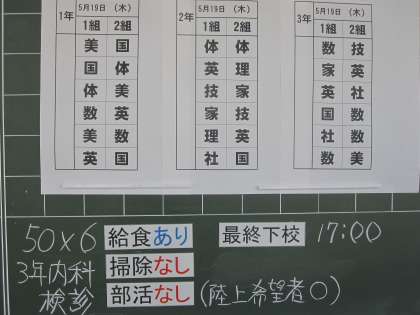 1年 5月19日 (木)
1組 2組
美 国
国 体
体 美
数 英
美 数
英 国
2年 5月19日 (木)
1組 2組
体 体
英 理
技 家
家 技
理 英
社 国
3年 5月19日 (木)
1組 2組
数 技
家 英
英 社
国 数
社 数
数 美
50×6 給食あり 最終下校 17:00
3年内科 掃除なし
検診 部活なし (陸上希望者○)